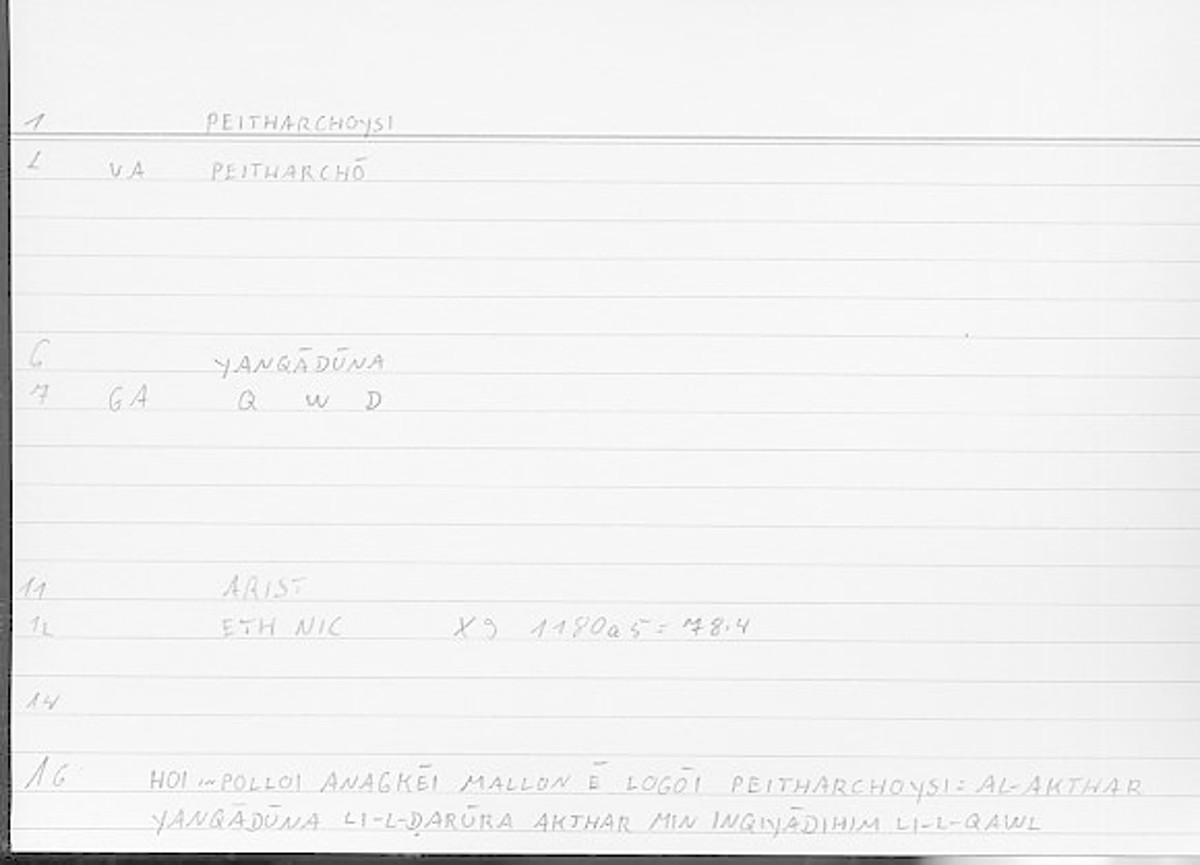 1 PEITHARCHOYSI
2 VA PEITHARCHŌ
6 YANQĀDŪNA
7 GA Q W D
11 ARIST
12 ETH NIC X 9 1180a5 = 78.4
14
16 HOI ~ POLLOI ANAGKĒI MALLON Ē LOGŌI PEITHARCHOYSI = AL-AKTHAR
YANQĀDŪNA LI-L-ḌARŪRA AKTHAR MIN INQIYĀDIHIM LI-L-QAWL